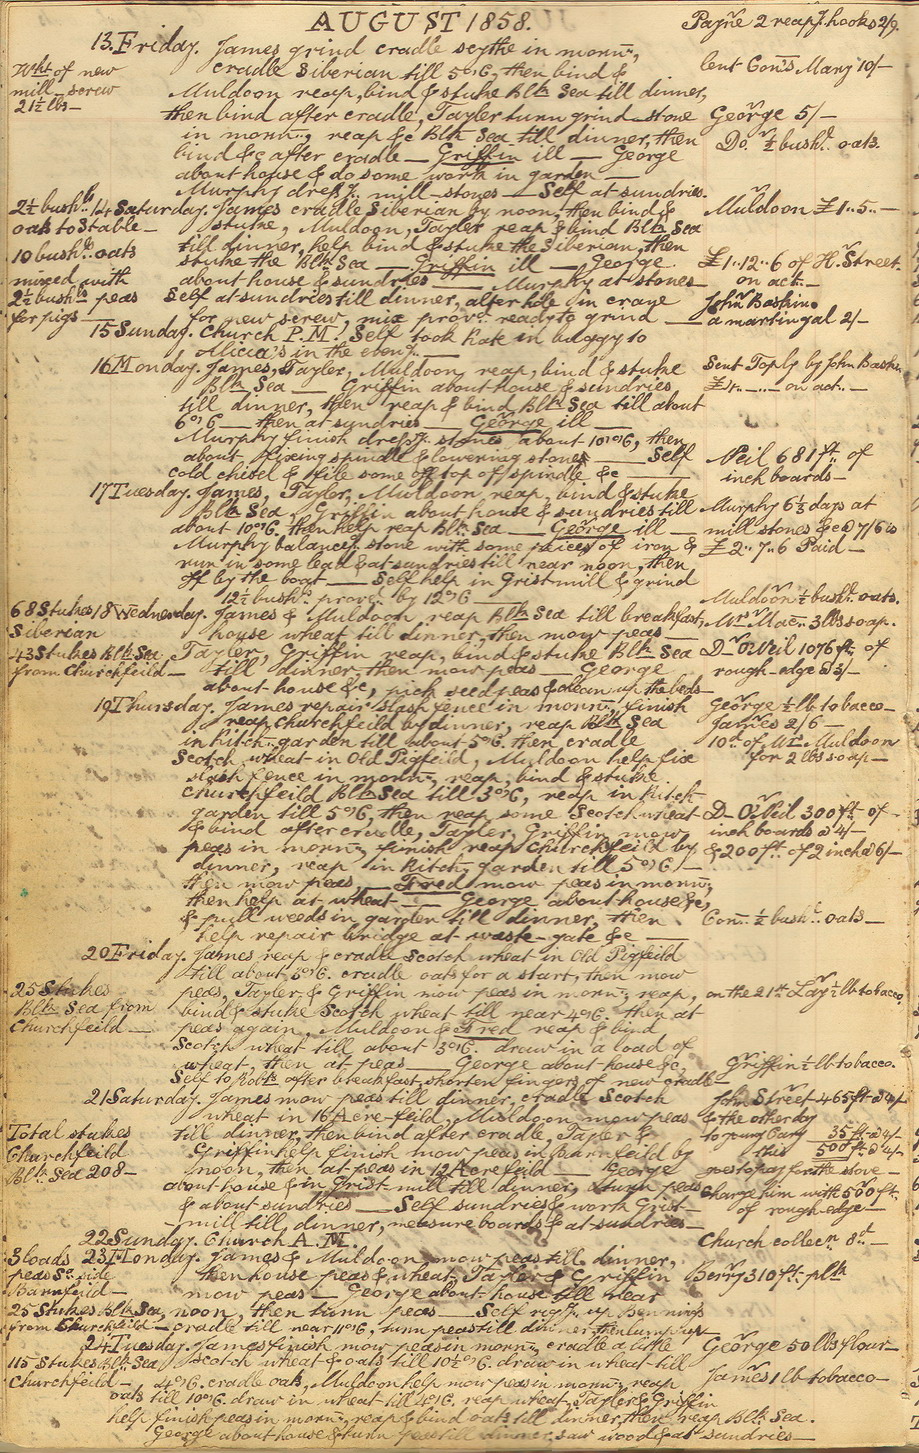 AUGUST 1858.
Payne 2 reapg. hooks 2/9.
13. Friday. James grind cradle scythe in mornn;
Wht of new
mill-screw
21½ lbs—
cradle Siberian till 5 o'C, then bind &
lent Con's Mary 10/-
Muldoon reap, bind & stuke Blk Sea till dinner,
then bind after cradle, Tayler turn grind-stone
George 5/—
in mornn; reap &c Blk Sea till dinner, then
Do. ½ bushl. oats.
bind &c after cradle — Griffin ill — George
about house & do some work in garden —
Murphy dressg. mill-stones — Self at sundries.
2½ bushls
oats to Stable—
14 Saturday. James cradle Siberian by noon, then bind &
Muldoon £1..5..—
stuke, Muldoon, Tayler reap & bind Blk Sea
10 bushls. oats
mixed with
2½ bushls peas
for pigs —
till dinner, help bind & stuke the Siberian, then
stuke the Blk Sea — Griffin ill — George
£1..12..6 of H. Street.
on act.—
about house & sundries — Murphy at stones—
Self at sundries till dinner, alter hole in crane
John Baskin
a martingal 2/-
for new screw, mix prov. ready to grind —
15 Sunday. Church P.M. Self took Kate in buggy to
Alicia's in the eveng. —
16 Monday. James, Tayler, Muldoon, reap, bind & stuke
Sent Toply by John Baskin
Blk Sea — Griffin about house & sundries
£4..—..— on act.—
till dinner, then reap & bind Blk Sea till about
6 o'C — then at sundries — George ill —
Murphy finish dressg. stones about 10 o'C, then
about fixing spindle & lowering stones — Self
Neil 681 ft. of
inch boards—
cold chisel & file some off top of spindle, &c —
17 Tuesday. James, Tayler, Muldoon, reap, bind & stuke
Blk Sea, Griffin about house & sundries till
Murphy 6½ days at
about 10 o'C. then help reap Blk Sea — George ill —
mill stones &c @ 7/6 is
Murphy balanceg. stone with some pieces of iron &
£2..7..6 Paid—
run in some lead & at sundries till near noon, then
off by the boat — Self help in Grist-mill & grind
12½ bushls. prove. by 12 o'C —
Muldoon ½ bushl. oats.
68 Stukes
Siberian
18 Wednesday. James & Muldoon reap Blk Sea till breakfast,
Mr. Mac.. 3 lbs soap.
house wheat till dinner, then mow peas —
43 Stukes Blk Sea
from Churchfeild—
Tayler, Griffin reap, bind & stuke Blk Sea
D— O'Neil 1076 ft. of
till dinner, then mow peas — George
rough-edge @ 3/-
about house &c, pick seed peas & clean up the beds—
19 Thursday. James repair slash fence in mornn; finish
George ½ lb tobacco—
reap Churchfeild by dinner, reap Blk Sea
James 2/6—
in Kitchn. garden till about 5 o'C. then cradle
10d. of Mr. Muldoon
Scotch wheat in Old Pigfeild, Muldoon help fix
for 2 lbs soap—
slash fence in mornn; reap, bind & stuke
Churchfeild Blk Sea till 3 o'C, reap in Kitchn
garden till 5 o'C, then reap some Scotch wheat
D— O'Neil 300 ft. of
& bind after cradle, Tayler, Griffin mow
inch boards @ 4/-
peas in mornn; finish reap Churchfeild by
& 200 ft. of 2 inch @ 6/—
dinner, reap in Kitchn garden till 5 o'C —
then mow peas, — Fred mow peas in mornn;
then help at wheat — George about house &c,
& pull weeds in garden till dinner, then
Con. ½ bushl. oats—
help repair bridge at waste-gate &c —
20 Friday. James reap & cradle Scotch wheat in Old Pigfeild
till about 3 o'C. cradle oats for a start, then mow
25 Stukes
Blk Sea from
Churchfeild—
peas, Tayler & Griffin mow peas in mornn; reap,
on the 21st Lay ½ lb tobacco.
bind & stuke Scotch wheat till near 4 o'C. then at
peas again, Muldoon & Fred reap & bind
Scotch wheat till about 3 o'C. draw in a load of
wheat, then at peas — George about house &c,
Griffin ½ lb tobacco.
Self to Robts after breakfast, shorten fingers of new cradle—
21 Saturday. James mow peas till dinner, cradle Scotch
John Street 465 ft @ 4/-
wheat in 16 Acre-feild, Muldoon mow peas
& the other day
Total stukes
Churchfeild
Blk Sea 208—
till dinner, then bind after cradle, Tayler &
35 ft. @ 4/-
Griffin help finish mow peas in Barnfeild by
this 500 ft @ 4/-
noon, then at peas in 12 Acrefeild — George
goes to pay for the stove—
about house & in Grist-mill till dinner, & turn peas
Charge him with 500 ft.
& about sundries — Self sundries & work Grist-
of rough-edge—
mill till dinner, measure boards & at sundries—
22 Sunday. Church A.M.
Church collecn. 8d.—
3 loads
peas So. side
Barnfeild—
23 Monday. James & Muldoon mow peas till dinner,
then house peas & wheat, Tayler & Griffin
Berry 310 ft. plk
mow peas — George about house till near
25 Stukes Blk Sea,
from Churchfeild—
noon, then turn peas — Self rigg. up Benning's
cradle till near 11 o'C, turn peas till dinner, then
24 Tuesday. James finish mow peas in mornn; cradle a little
George 50 lbs flour—
115 Stukes Blk Sea
Churchfeild—
Scotch wheat & oats till 10½ o'C. draw in wheat till
4 o'C, cradle oats, Muldoon help mow peas in mornn; reap
James 1 lb tobacco—
oats till 10 o'C. draw in wheat till 4 o'C. reap wheat, Tayler & Griffin
help finish peas in mornn; reap & bind oats till dinner, then reap Blk Sea.
George about house & turn peas till dinner, saw wood & at sundries—